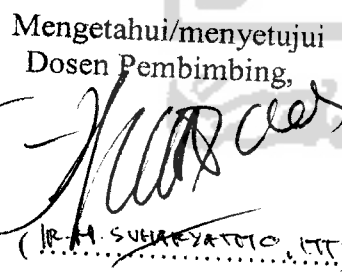 Mengetahui/menyetujui
Dosen Pembimbing,
( IR. H. SUHARYATMO, MT